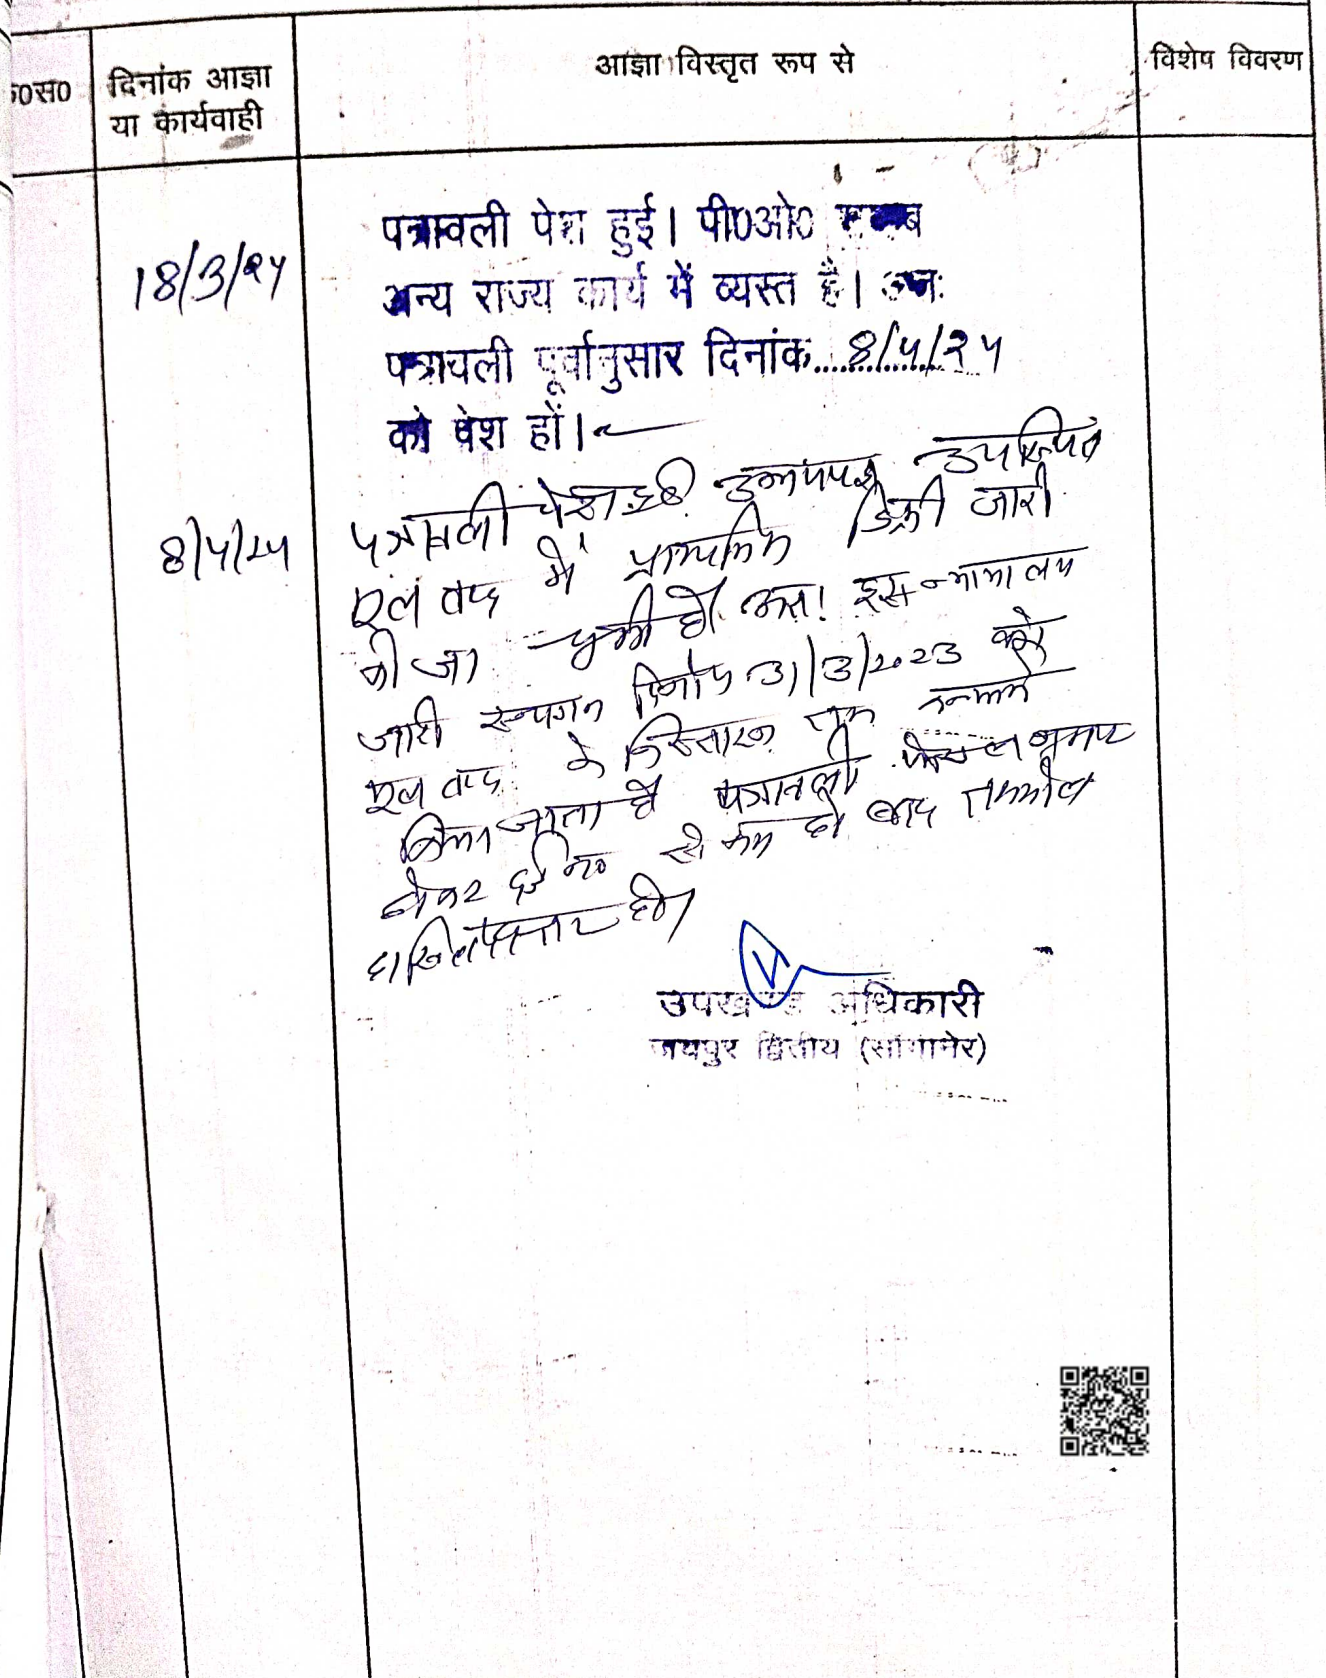 क्र०स०
दिनांक आज्ञा
या कार्यवाही
आज्ञा विस्तृत रूप से
विशेष विवरण
18/3/25
पत्रावली पेश हुई। पी०ओ०
अन्य राज्य कार्य में व्यस्त है। अतः
पत्रावली पूर्वानुसार दिनांक....8/4/25
को पेश हों।
8/4/25
पत्रावली पेश हुई उभयपक्ष उपस्थित
मूल वाद में प्राथमिक डिक्री जारी
की जा चुकी है। अतः इस न्यायालय
जारी स्थगन दिनांक 31/3/2023 को
मूल वाद के निस्तारण तक कन्फर्म
किया जाता है पत्रावली फैसल शुमार
होकर दर्ज न० से कम हो बाद तकमील
दाखिलदफ्तर हो।
उपखण्ड अधिकारी
जयपुर द्वितीय (सांगानेर)